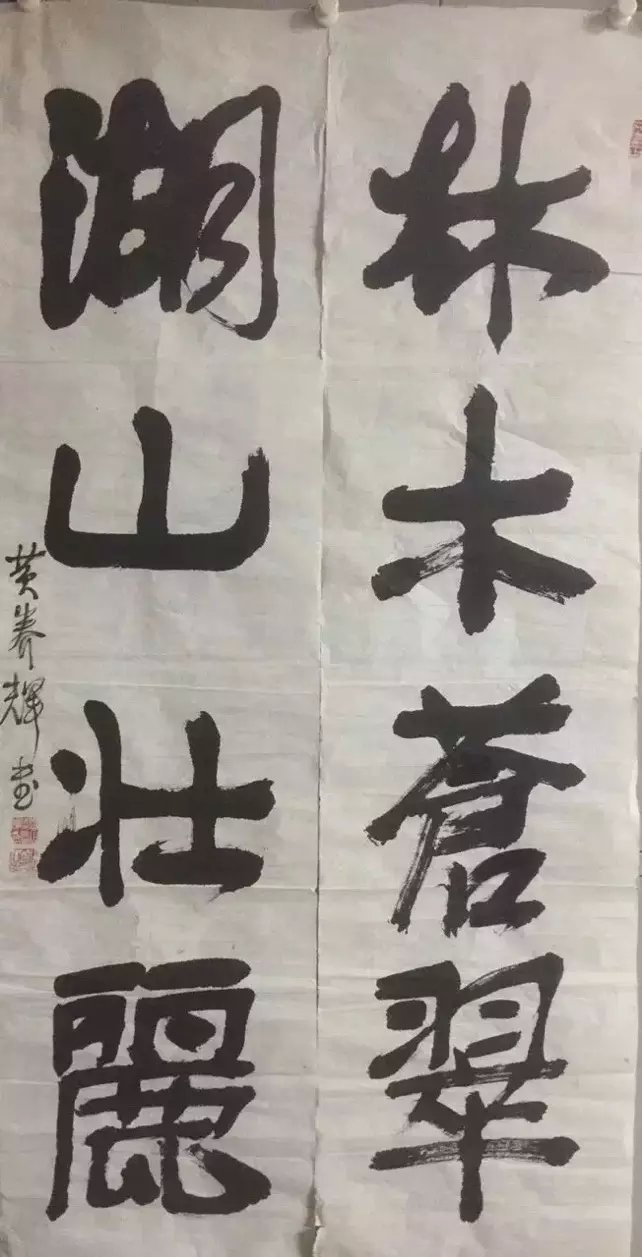 林木蒼翠
湖山壯麗
黄养辉书